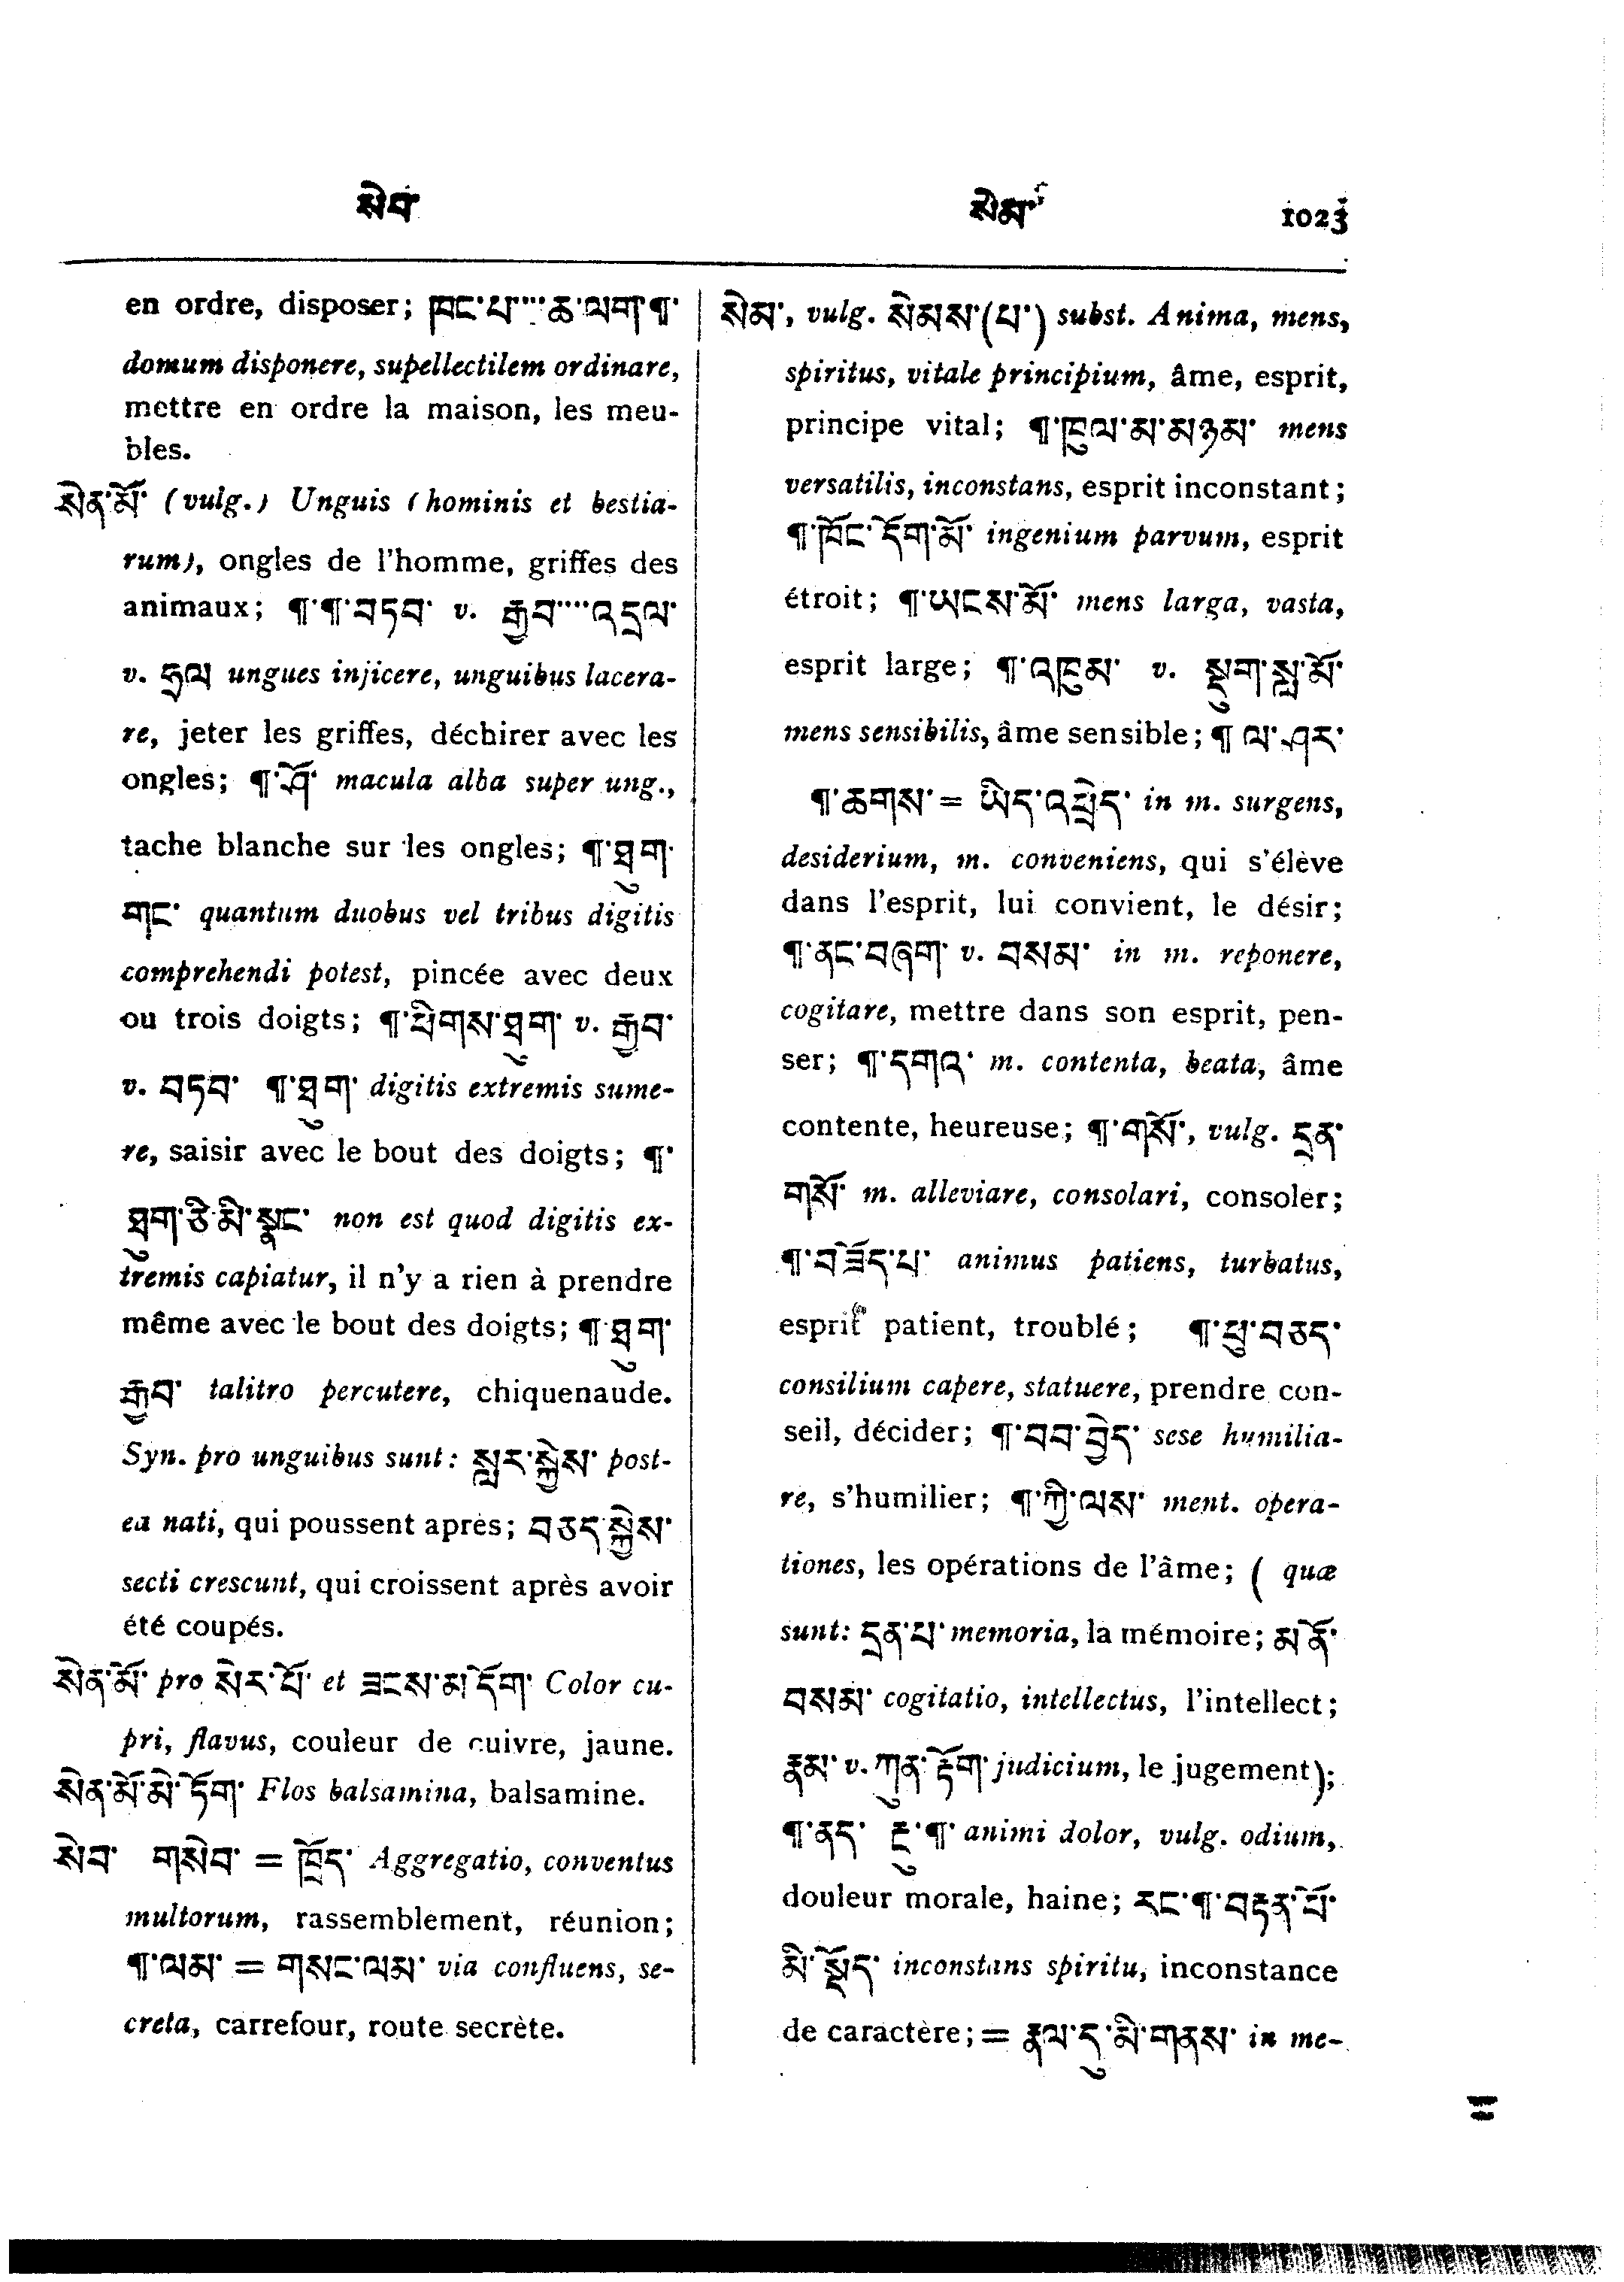 སེབ་
སེམ་
1023
en ordre, disposer; ཁང་པ་....ཆ་ལག་¶་
domum disponere, supellectilem ordinare,
mettre en ordre la maison, les meu-
bles.
སེན་མོ་ (vulg.) Unguis (hominis et bestia-
rum), ongles de l'homme, griffes des
animaux; ¶་¶་བཏབ་ v. རྒྱབ་....འདྲལ་
v. ཧྲལ ungues injicere, unguibus lacera-
re, jeter les griffes, déchirer avec les
ongles; ¶་ཤོ་ macula alba super ung.,
tache blanche sur les ongles; ¶་ཐུག་
གང་ quantum duobus vel tribus digitis
comprehendi potest, pincée avec deux
ou trois doigts; ¶་ཕྲིགས་ཐུག་ v. རྒྱབ་
v. བཏབ་ ¶་ཐུག་ digitis extremis sume-
re, saisir avec le bout des doigts; ¶་
ཐུག་ཅི་མི་སྣང་ non est quod digitis ex-
tremis capiatur, il n'y a rien à prendre
même avec le bout des doigts; ¶་ཐུག་
རྒྱབ་ talitro percutere, chiquenaude.
Syn. pro unguibus sunt: སླར་སྐྱེས་ post-
ea nati, qui poussent après; བཅད་སྐྱེས་
secti crescunt, qui croissent après avoir
été coupés.
སེན་མོ་ pro སེར་པོ་ et ཟངས་མདོག་ Color cu-
pri, flavus, couleur de cuivre, jaune.
སེན་མོ་མེ་ཏོག་ Flos balsamina, balsamine.
སེབ་ གསེབ་ = ཁྲོད་ Aggregatio, conventus
multorum, rassemblement, réunion;
¶་ལམ་ = གསང་ལམ་ via confluens, se-
creta, carrefour, route secrète.
སེམ་, vulg. སེམས་(པ་) subst. Anima, mens,
spiritus, vitale principium, âme, esprit,
principe vital; ¶་ཁྲུལ་མ་མཉམ་ mens
versatilis, inconstans, esprit inconstant;
¶་ཁོང་དོག་མོ་ ingenium parvum, esprit
étroit; ¶་ཡངས་མོ་ mens larga, vasta,
esprit large; ¶་འཁྲུམ་ v. སྡུག་སླ་མོ་
mens sensibilis, âme sensible; ¶ ལ་ཤར་
¶་ཆགས་ = ཡིད་འཕྲེད་ in m. surgens,
desiderium, m. conveniens, qui s'élève
dans l'esprit, lui convient, le désir;
¶་ནང་བཞག་ v. བསམ་ in m. reponere,
cogitare, mettre dans son esprit, pen-
ser; ¶་དགའ་ m. contenta, beata, âme
contente, heureuse; ¶་གསོ་, vulg. དྲན་
གསོ་ m. alleviare, consolari, consoler;
¶་བཟོད་པ་ animus patiens, turbatus,
esprit patient, troublé; ¶་ཕྲུ་བཅད་
consilium capere, statuere, prendre con-
seil, décider; ¶་བབ་བྱེད་ sese humilia-
re, s'humilier; ¶་ཀྱི་ལས་ ment. opera-
tiones, les opérations de l'âme; ( quæ
sunt: དྲན་པ་ memoria, la mémoire; མནོ་
བསམ་ cogitatio, intellectus, l'intellect;
རྣམ་ v. ཀུན་རྟོག་ judicium, le jugement);
¶་ནད་ རྔུ་¶་ animi dolor, vulg. odium,
douleur morale, haine; རང་¶་བརྟན་པོ་
མི་སྡོད་ inconstans spiritu, inconstance
de caractère; = རྣལ་དུ་མི་གནས་ in me-